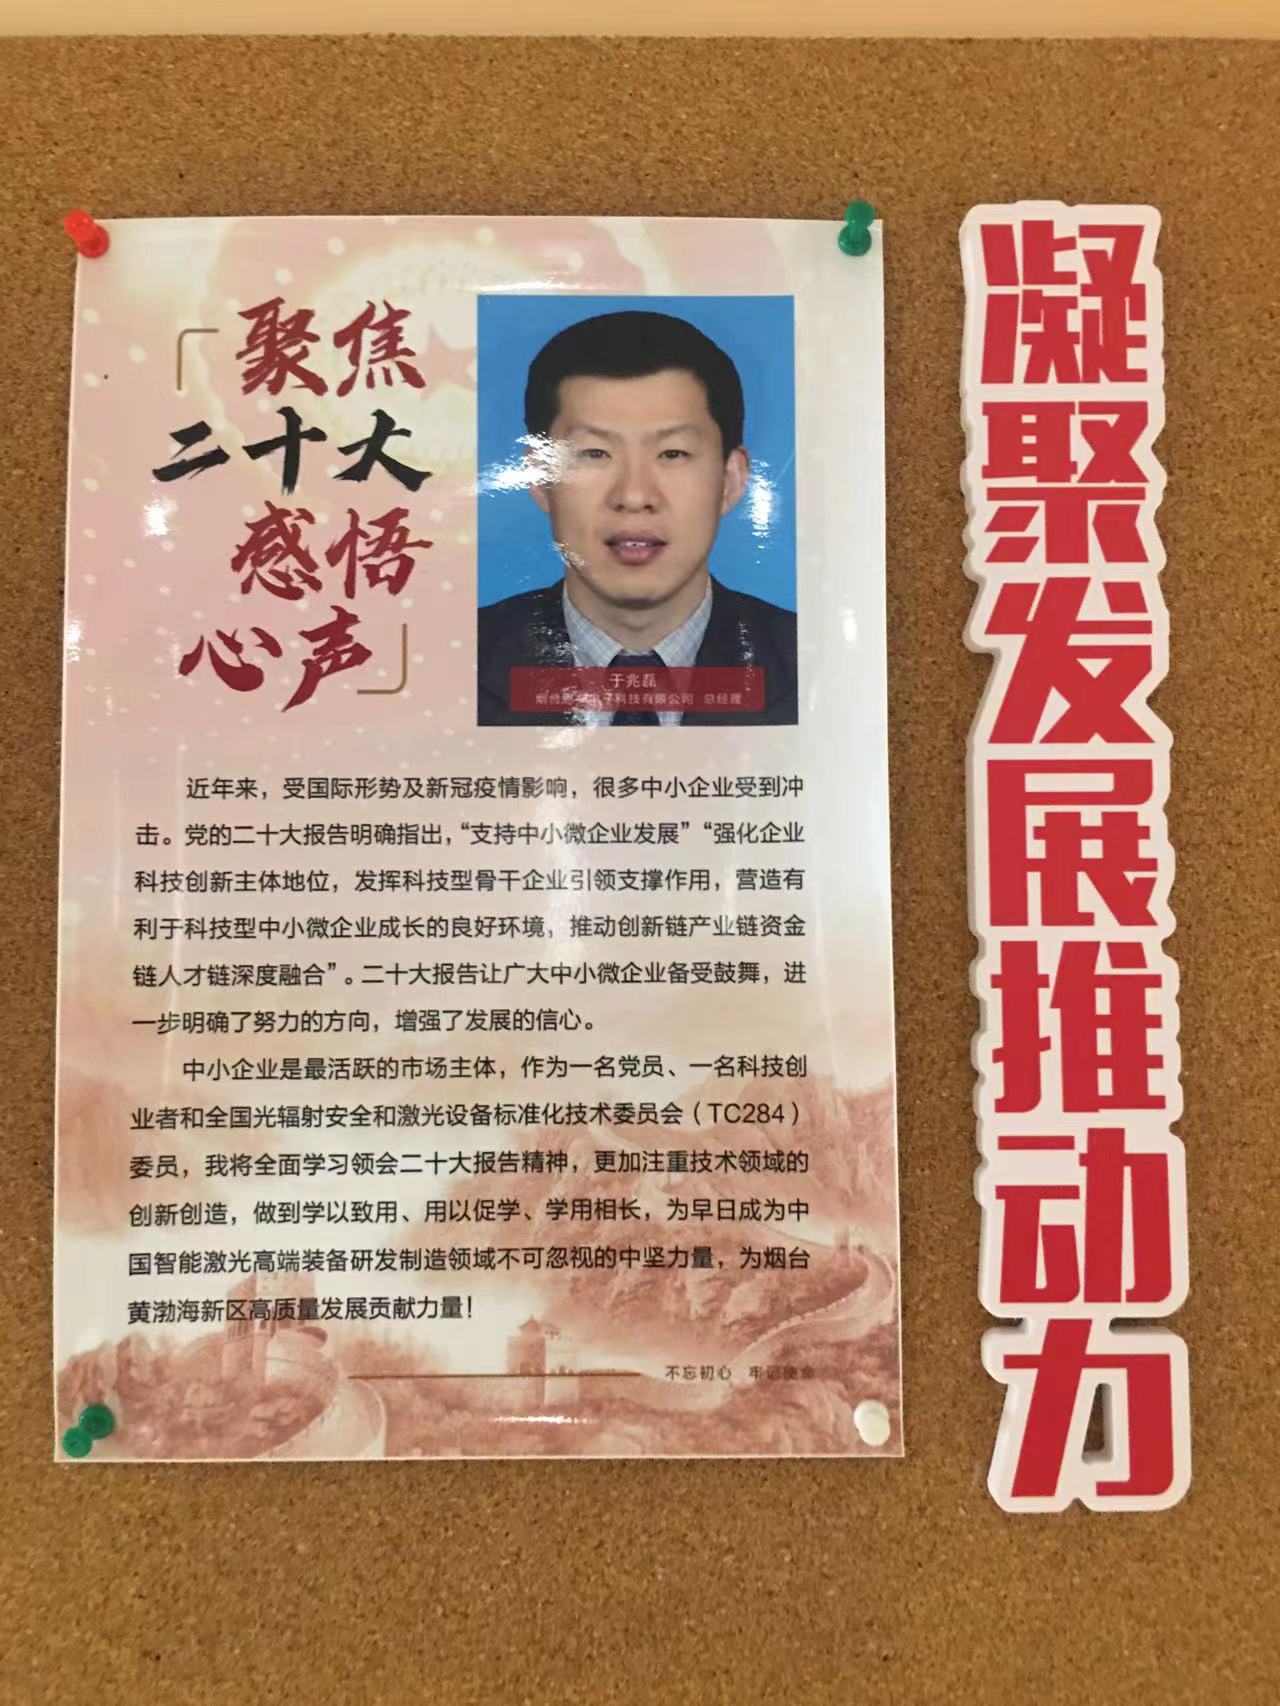 「聚焦
二十大
感悟
心声」
于兆磊
烟台 电子科技有限公司 总经理
近年来，受国际形势及新冠疫情影响，很多中小企业受到冲
击。党的二十大报告明确指出，“支持中小微企业发展”“强化企业
科技创新主体地位，发挥科技型骨干企业引领支撑作用，营造有
利于科技型中小微企业成长的良好环境，推动创新链产业链资金
链人才链深度融合”。二十大报告让广大中小微企业备受鼓舞，进
一步明确了努力的方向，增强了发展的信心。
中小企业是最活跃的市场主体，作为一名党员、一名科技创
业者和全国光辐射安全和激光设备标准化技术委员会（TC284）
委员，我将全面学习领会二十大报告精神，更加注重技术领域的
创新创造，做到学以致用、用以促学、学用相长，为早日成为中
国智能激光高端装备研发制造领域不可忽视的中坚力量，为烟台
黄渤海新区高质量发展贡献力量！
不忘初心 牢记使命
凝聚发展推动力